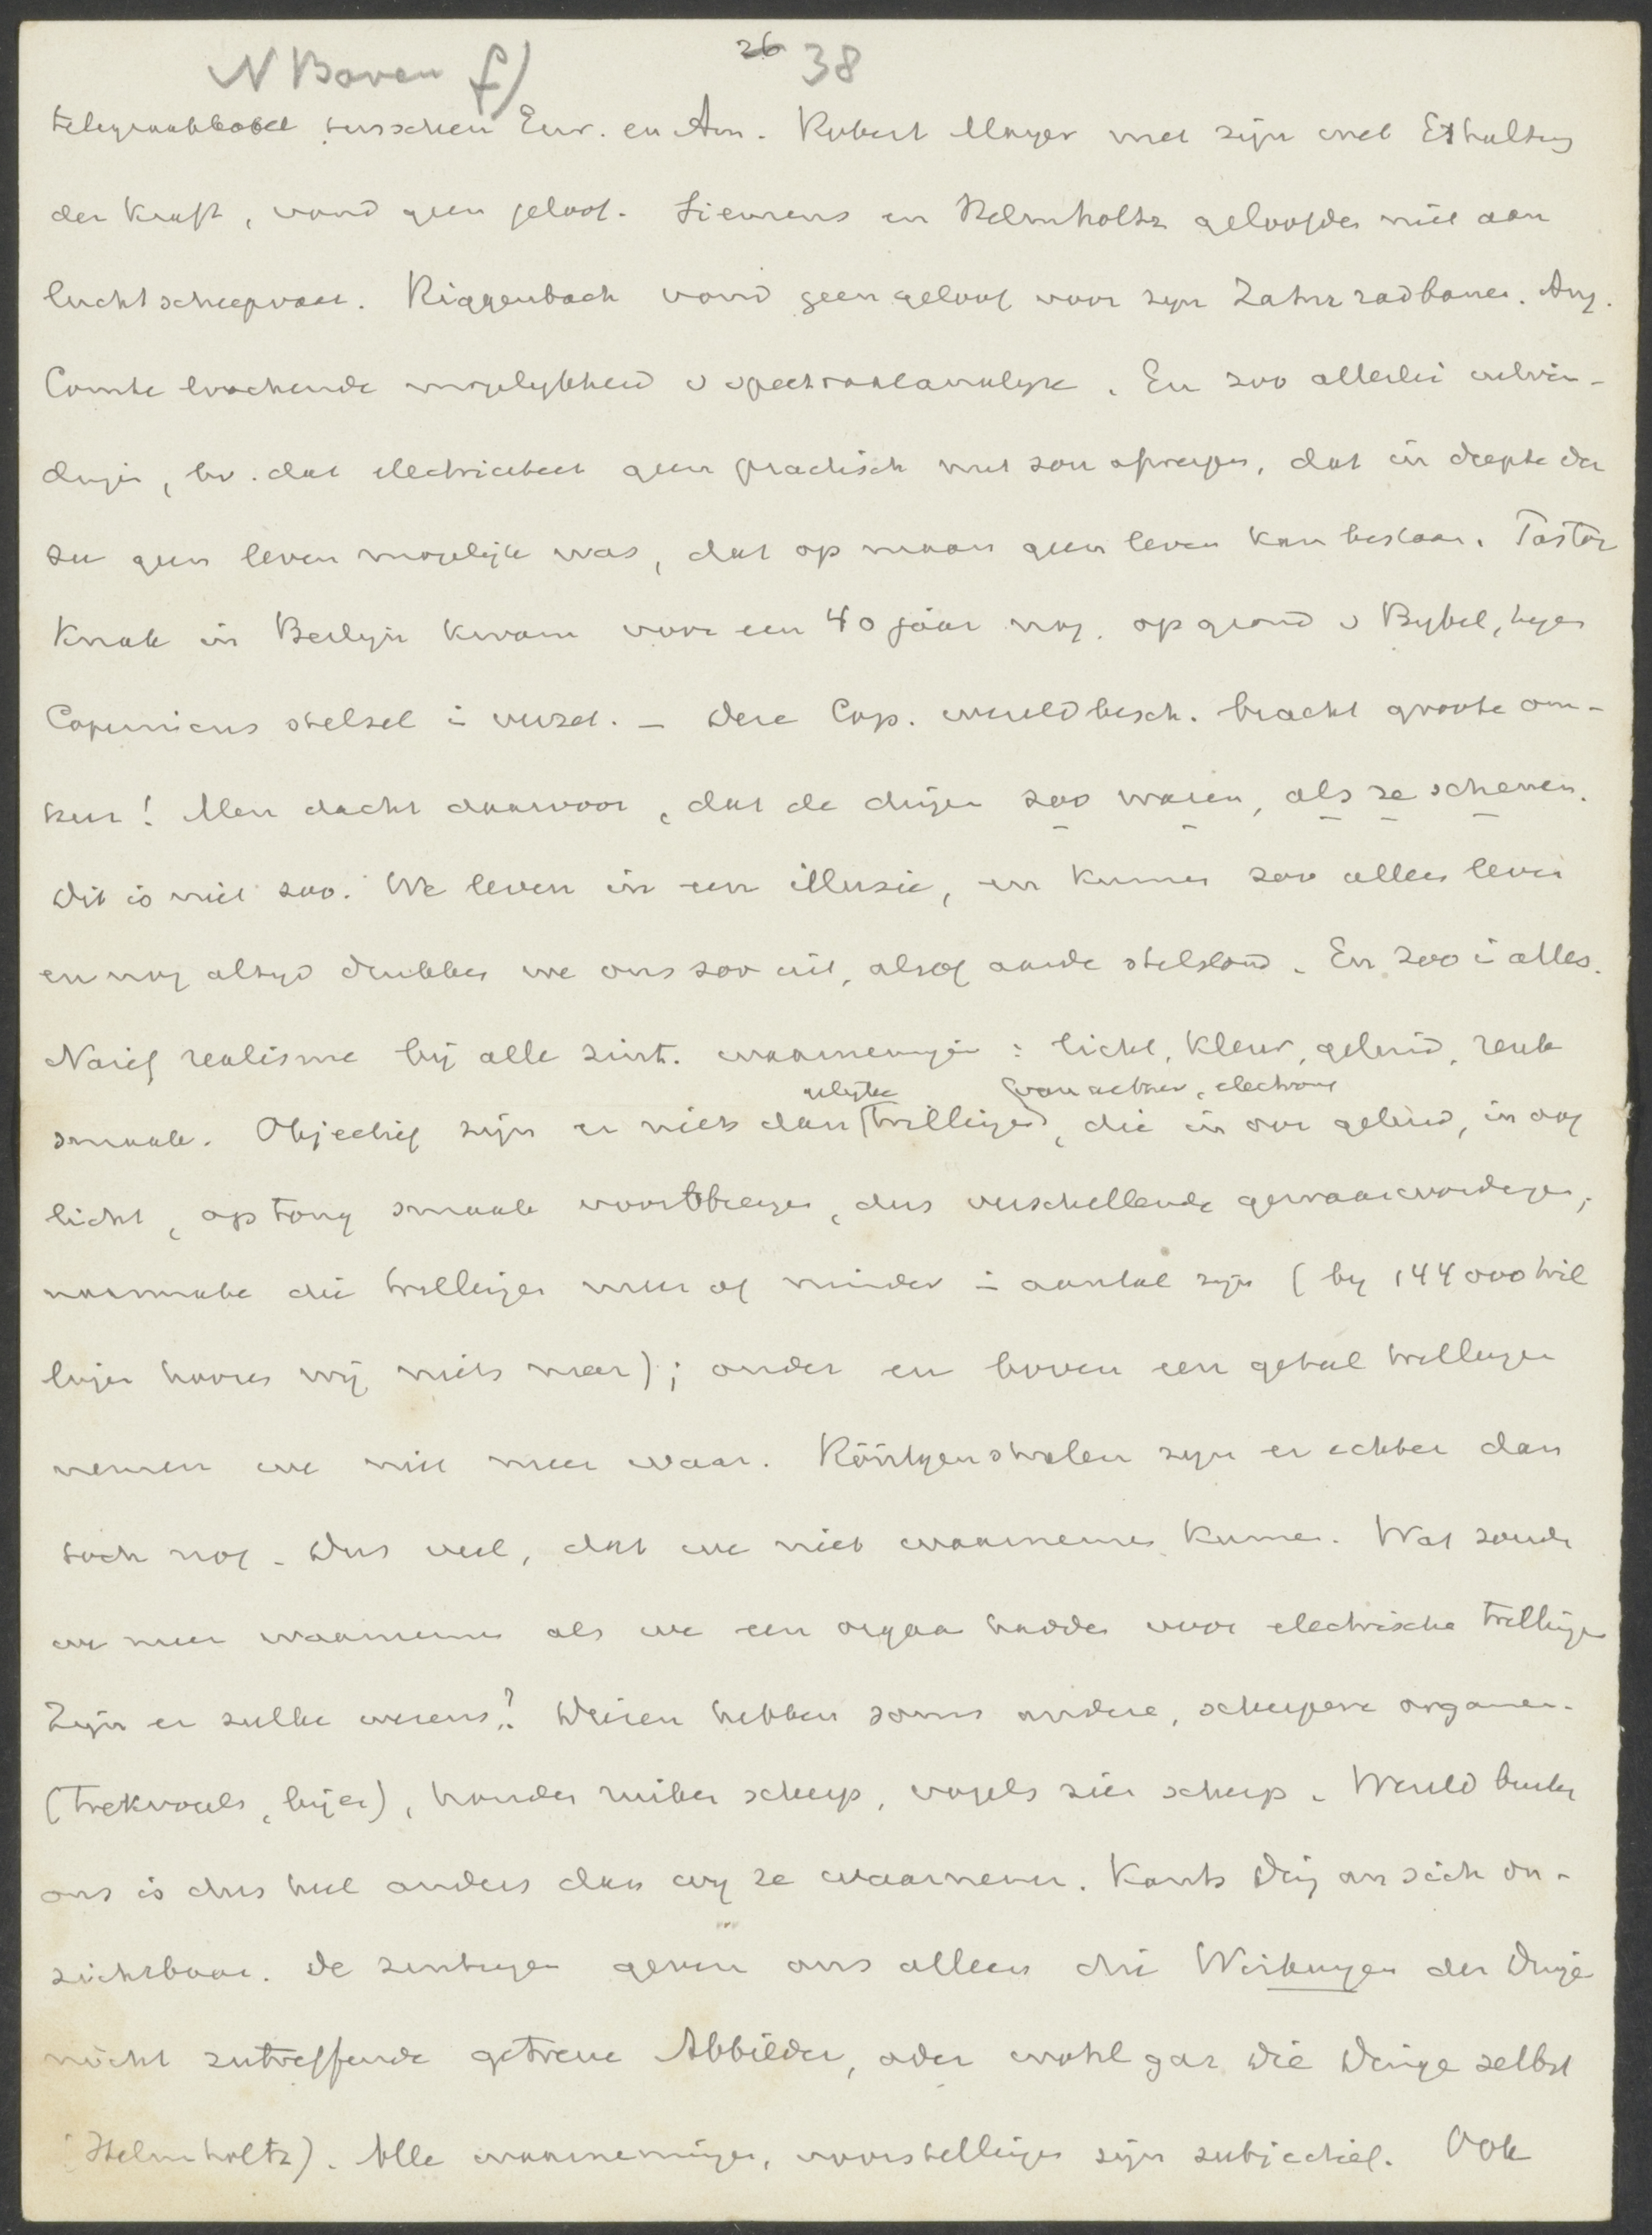 N Boven f) 26 38
telegraafkabel tusschen Eur. en Am. Robert Mayer met zijn wet Erhaltung
der Kraft, vond geen geloof. Siemens en Helmholtz geloofden niet aan
luchtscheepvaart. Riggenbach vond geen geloof voor zijn Zahnradbanen. Aug.
Comte lochende mogelykheid v spectraalanalyse. En zoo allerlei uitvin-
dingen, bv. dat electriciteit geen practisch nut zou afwerpen, dat in diepte der
zee geen leven mogelijk was, dat op maan geen leven kan bestaan. Pastor
Knak in Berlijn kwam voor een 40 jaar nog, op grond v Bybel, tegen
Copernicus stelsel i verzet. – Deze Cop. wereldbesch. bracht groote om-
keer! Men dacht daarvoor, dat de dingen zoo waren, als ze schenen.
Dit is niet zoo. We leven in een illusie, en kunnen zoo alleen leven
en nog altyd drukken we ons zoo uit, alsof aarde stilstond. En zoo i alles.
Naief realisme bij alle zint. waarnemingen : licht, kleur, geluid, reuk
smaak. Objectief zijn er niets dan (trillingen), die in oor geluid, in oog
gelijke (van aether, electrons
licht, op tong smaak voortbrengen, dus verschillende gewaarwordingen,
naarmate die trillingen meer of minder i aantal zijn (by 144000 tril
lingen hooren wij niets meer); onder en boven een getal trillingen
nemen we niet meer waar. Röntgenstralen zijn er echter dan
toch nog. Dus veel, dat we niet waarnemen kunnen. Wat zouden
we meer waarnemen als we een orgaan hadden voor electrische trillingen
Zijn er zulke wezens? Dieren hebben soms andere, scherpere organen.
(trekvogels, bijen), honden ruiken scherp, vogels zien scherp. Wereld buiten
ons is dus heel anders dan wy ze waarnemen. Kants Ding an sich on-
zichtbaar. De zintuigen geven ons alleen die Wirkungen der Dinge
nicht zutreffende getreue Abbilder, oder wohl gar die Dinge selbst
(Helmholtz). Alle waarnemingen, voorstellingen zijn subjectief. Ook